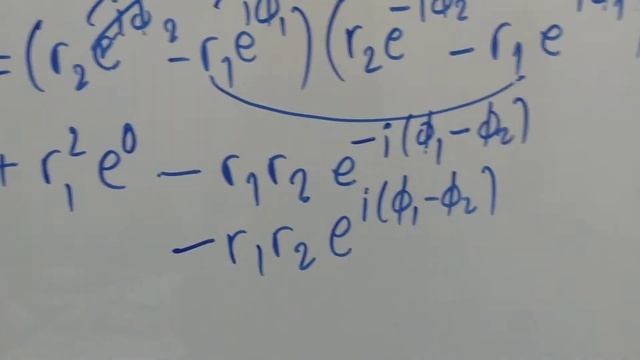 =(r₂e^{iϕ₂} - r₁e^{iϕ₁})(r₂e^{-iϕ₂} - r₁e
+ r₁²e⁰ - r₁r₂e^{-i(ϕ₁-ϕ₂)}
- r₁r₂e^{i(ϕ₁-ϕ₂)}